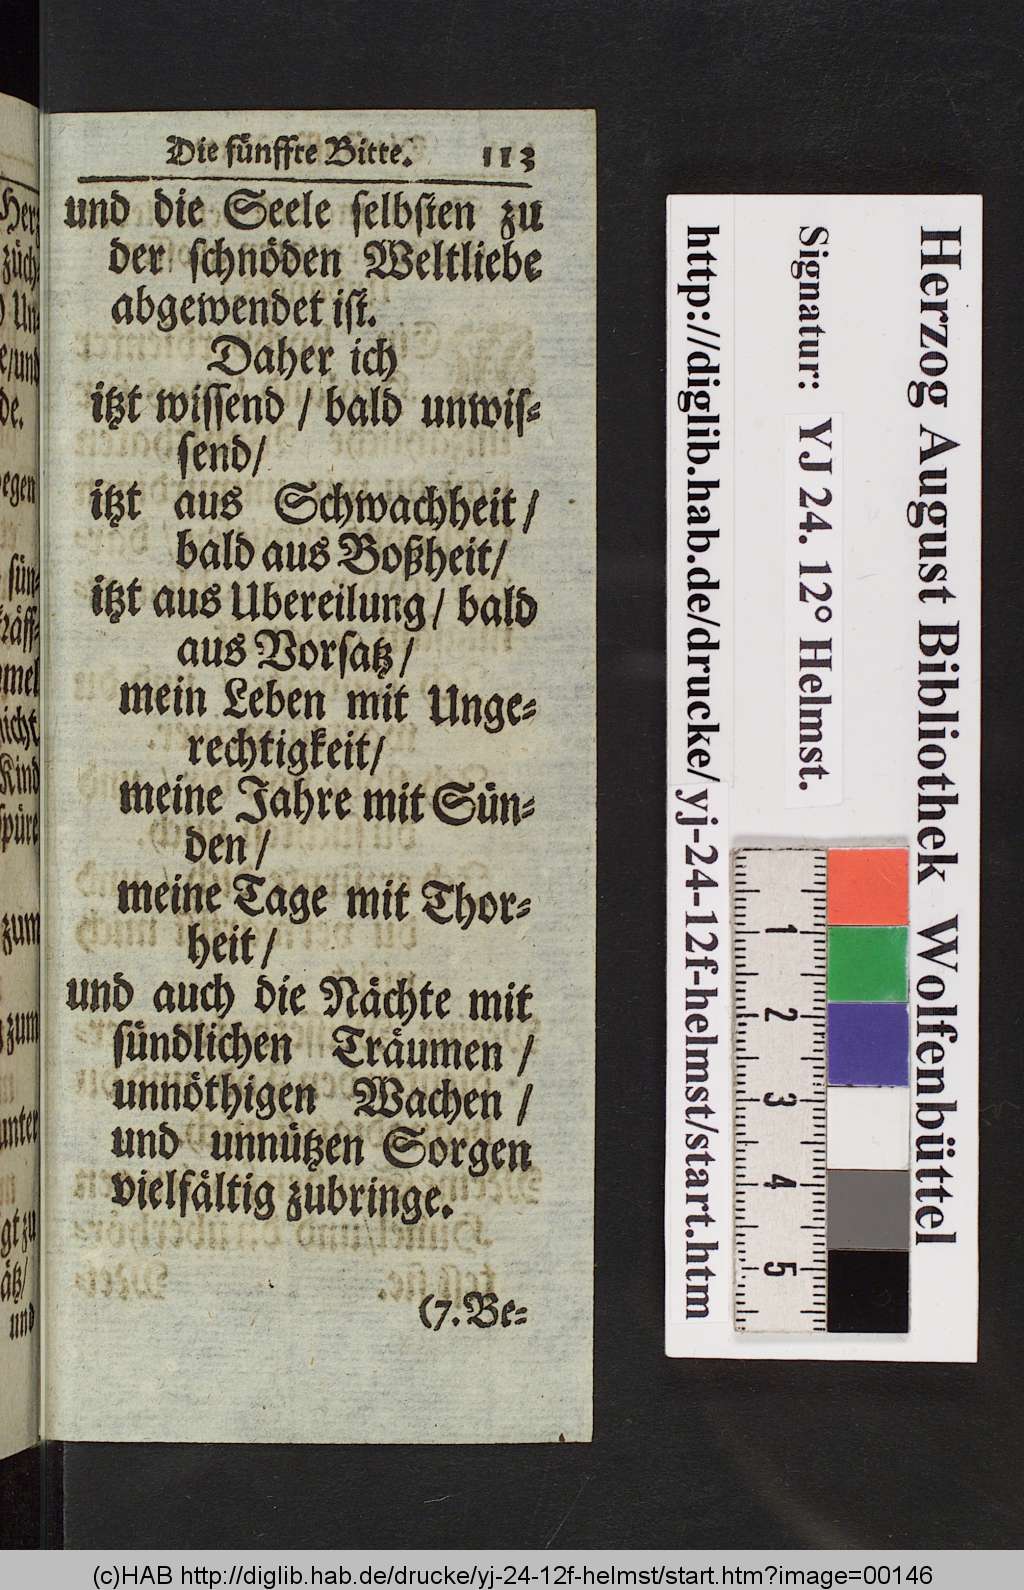 Die fünffte Bitte. 113
und die Seele selbsten zu
der schnöden Weltliebe
abgewendet ist.
Daher ich
itzt wissend / bald unwis-
send/
itzt aus Schwachheit /
bald aus Boßheit/
itzt aus Ubereilung / bald
aus Vorsatz /
mein Leben mit Unge-
rechtigkeit/
meine Jahre mit Sün-
den /
meine Tage mit Thor-
heit /
und auch die Nächte mit
sündlichen Träumen /
unnöthigen Wachen /
und unnützen Sorgen
vielfältig zubringe.
(7. Be-
Herzog August Bibliothek Wolfenbüttel
Signatur: YJ 24. 12° Helmst.
http://diglib.hab.de/drucke/yj-24-12f-helmst/start.htm
1
2
3
4
5
(c)HAB http://diglib.hab.de/drucke/yj-24-12f-helmst/start.htm?image=00146